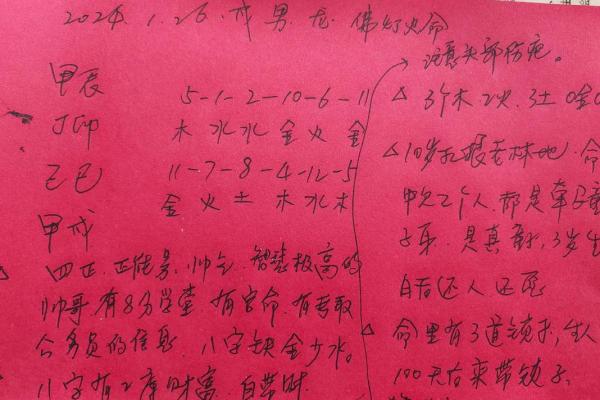 2024.1.26.戌 男.龙.佛灯火命
甲辰
丁卯
己巳
甲戌
5-1-2-10-6-11
木水水金火金
11-7-8-4-12-5
金火土木水木
四正.正能量.帅气.智慧极高的
帅哥.有8分学堂.有官命.有考取
公务员的信息.八字缺金少水。
八字有2库财富.自带财
注意头部伤疤。
△3个木2火.3土0金0
△10岁扎根老林地.命
中欠2个人.都是牵子童
子来.是真童子,3岁
白后还人还死
命里有3道锁子,生人
100天后来带锁子